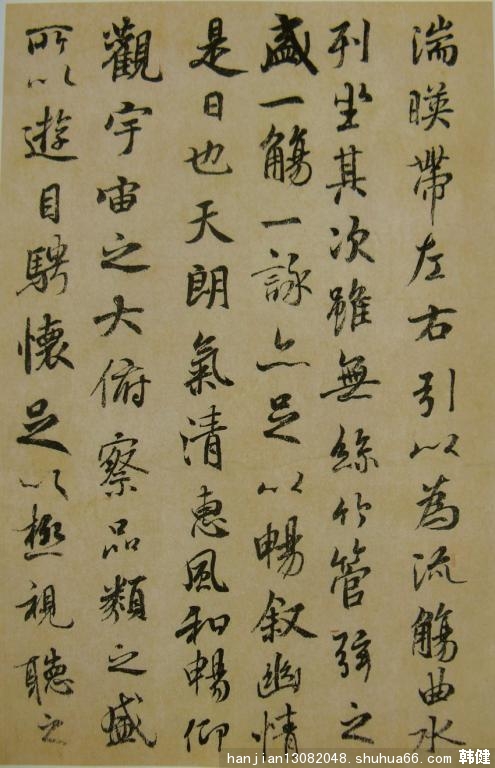 湍暎帶左右引以為流觴曲水
列坐其次雖無絲竹管弦之
盛一觴一詠亦足以暢叙幽情
是日也天朗氣清惠風和暢仰
觀宇宙之大俯察品類之盛
所以遊目騁懷足以極視聽之
hanjian13082048.shuhua66.com 韩健